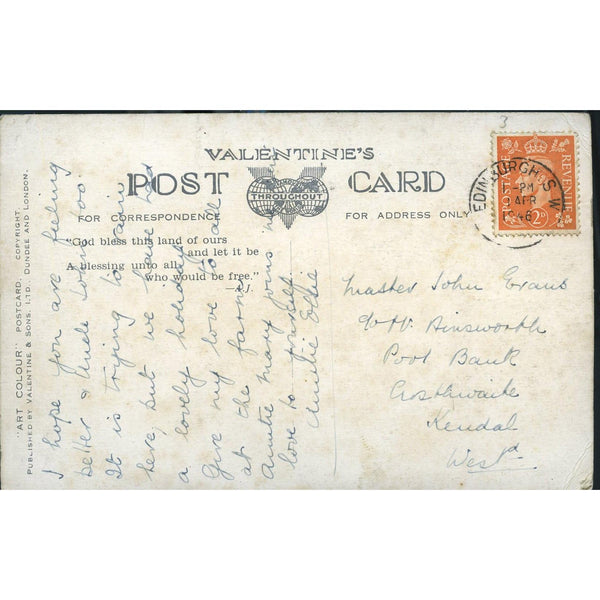 3
VALENTINE'S
POST CARD
THROUGHOUT
THE WORLD
FOR CORRESPONDENCE
FOR ADDRESS ONLY
"God bless this land of ours
and let it be
A blessing unto all
who would be free."
—A.J.
POSTAGE
REVENUE
2D
EDINBURGH. S.W.
PM
APR
46
Master John Evans
Ainsworth
Pool Bank
Crosthwaite
Kendal
Westd
I hope you are feeling
better & Uncle Tom too
It is trying to rain
here, but we have had
a lovely holiday
Give my love to all
at the farm
Auntie Mary joins me in
love to yourself
Auntie
"ART COLOUR" POSTCARD. COPYRIGHT.
PUBLISHED BY VALENTINE & SONS, LTD. DUNDEE AND LONDON.